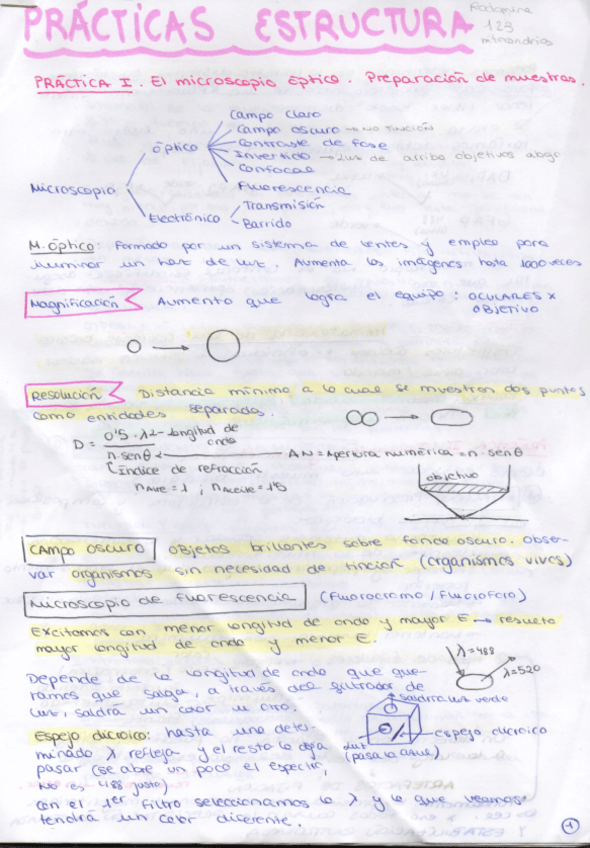 PRÁCTICAS ESTRUCTURA
Rodamina
123
mitocondrias
PRÁCTICA I. El microscopio óptico. Preparación de muestras.
Microscopio
óptico
Campo claro
Campo oscuro → NO TINCIÓN
Contraste de fase
Invertido → Luz de arriba objetivos abajo
Confocal
Fluorescencia
Electrónico
Transmisión
Barrido
M. óptico: Formado por un sistema de lentes y emplea para
iluminar un haz de luz. Aumenta las imágenes hasta 1000 veces
Magnificación Aumento que logra el equipo: OCULARES x
OBJETIVO
Resolución Distancia mínima a la cual se muestran dos puntos
como entidades separadas.
D = 0'5·λ ← Longitud de onda
n·senθ ← AN = Apertura numérica = n·senθ
Índice de refracción
nAire = 1 ; nAceite = 1'5
objetivo
Campo oscuro Objetos brillantes sobre fondo oscuro. Obser-
var organismos sin necesidad de tinción (organismos vivos)
Microscopio de fluorescencia (Fluorocromo / Fluoróforo)
Excitamos con menor longitud de onda y mayor E → resuelta
mayor longitud de onda y menor E.
λ=488
λ=520
Depende de la longitud de onda que que-
ramos que salga, a través del filtrador de
luz, saldrá un color u otro.
saldría luz verde
espejo dicroico
luz
(pasa la azul)
Espejo dicroico: hasta una deter-
minada λ refleja y el resto lo deja
pasar (se abre un poco el espectro,
No es 488 justo)
Con el 1er filtro seleccionamos la λ y lo que veamos
tendrá un color diferente.
1